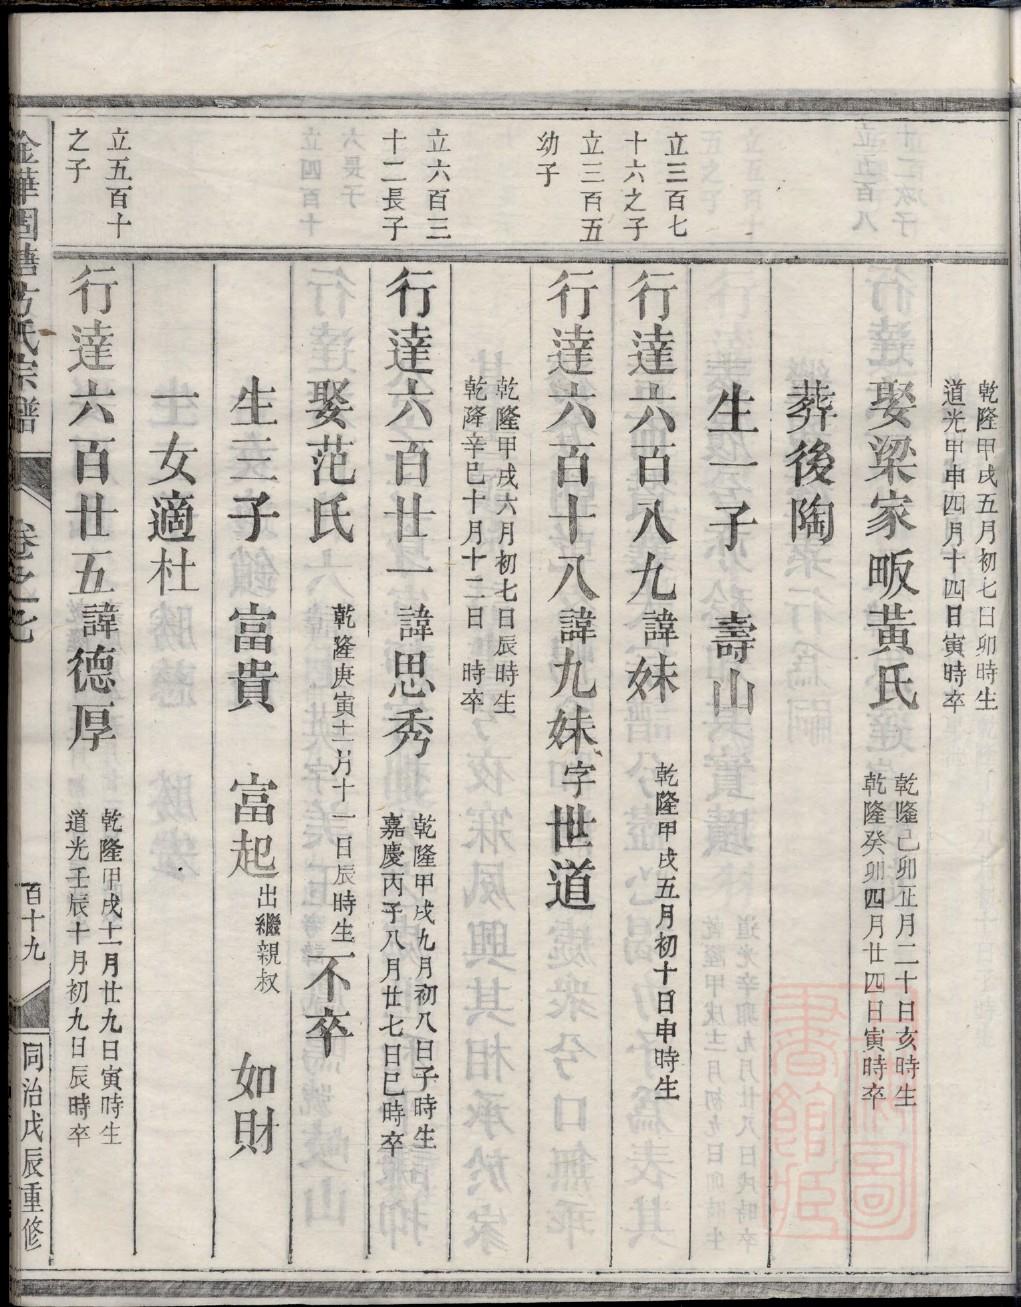 乾隆甲戌五月初七日卯時生
道光甲申四月十四日寅時卒
娶梁家畈黃氏
乾隆己卯正月二十日亥時生
乾隆癸卯四月廿四日寅時卒
葬後陶
生一子　壽山
立三百七
十六之子
行達六百八九諱妹
乾隆甲戌五月初十日申時生
立三百五
幼子
行達六百十八諱九妹字世道
乾隆甲戌六月初七日辰時生
乾隆辛巳十月十二日　時卒
立六百三
十二長子
行達六百廿一諱思秀
乾隆甲戌九月初八日子時生
嘉慶丙子八月廿七日巳時卒
娶范氏
乾隆庚寅十二月十一日辰時生
不卒
生三子　富貴　富起
出繼親叔
如財
一女適杜
立五百十
之子
行達六百廿五諱德厚
乾隆甲戌十一月廿九日寅時生
道光壬辰十月初九日辰時卒
方氏宗譜
卷之七
百十九
同治戊辰重修